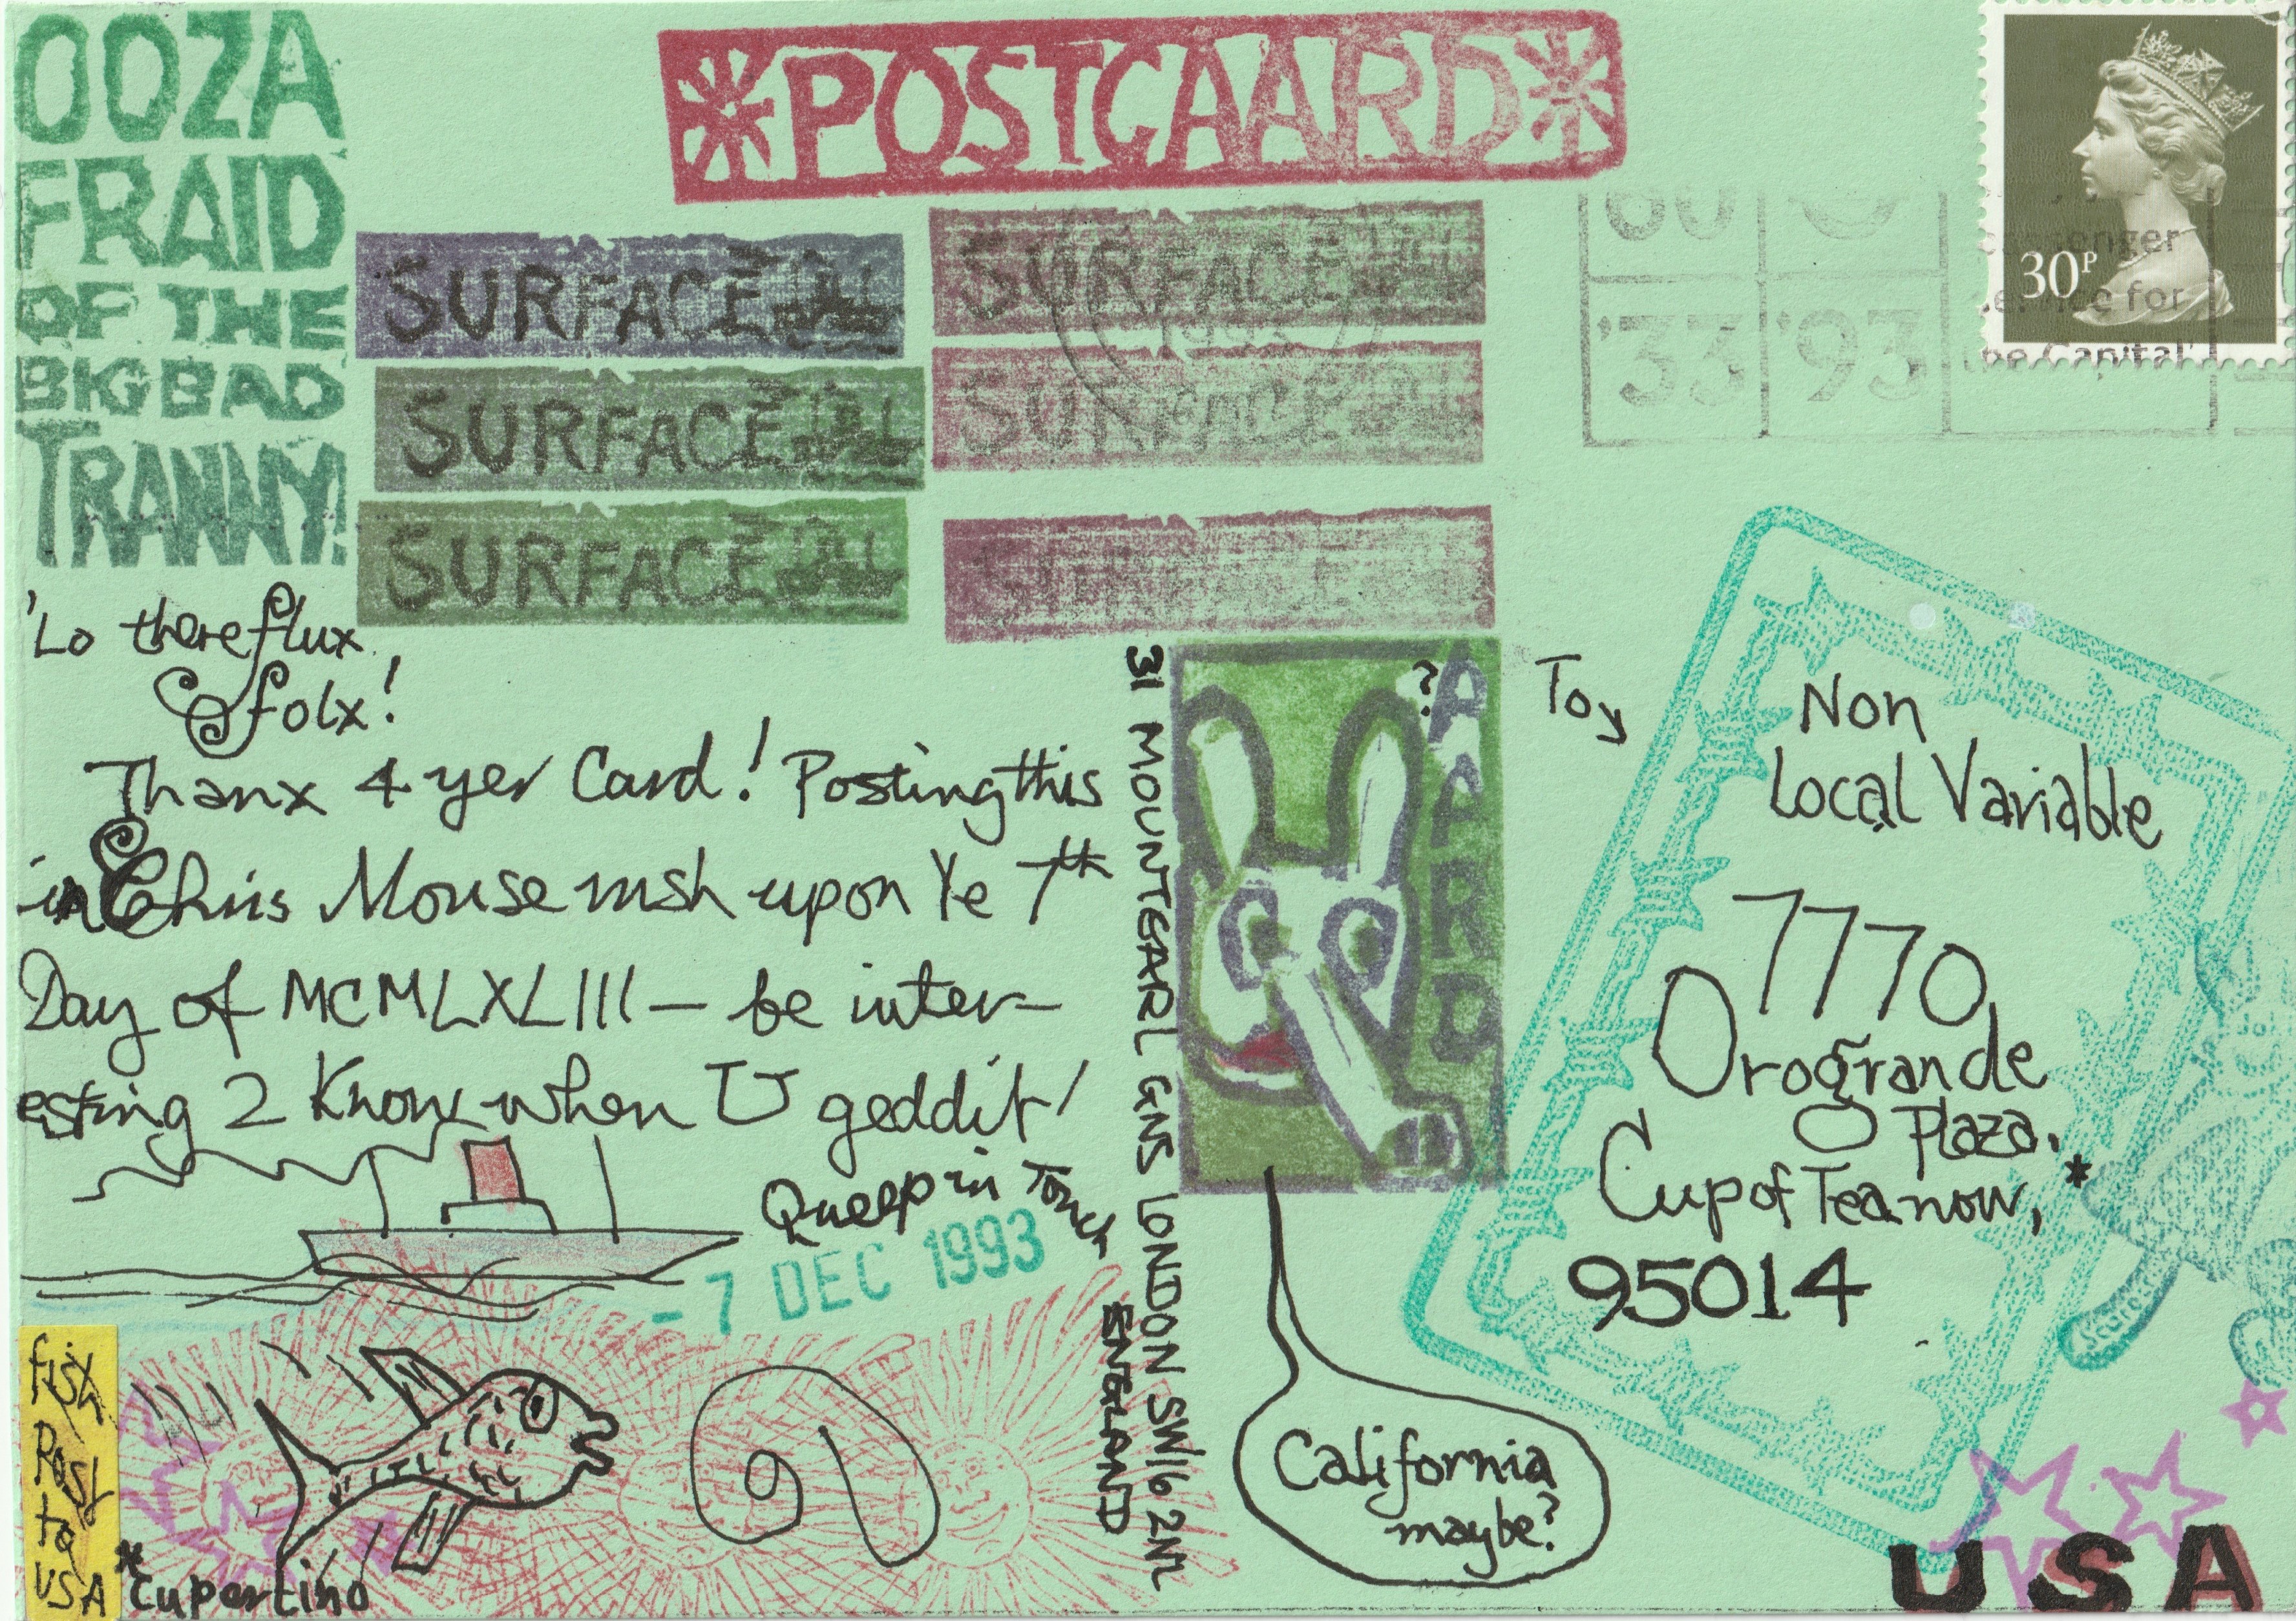 OOZA
FRAID
OF THE
BIG BAD
TRANNY!
*POSTCAARD*
SURFACE
SURFACE
SURFACE
SURFACE
SURFACE
SURFACE
1993
'33 '93
senger
for
the Capital'
30P
'Lo there flux
folx!
Thanx 4 yer Card! Posting this
in Chris Mouse rush upon Ye 7th
Day of MCMLXLIII – be inter-
esting 2 Know when U geddit!
Queep in Touch
- 7 DEC 1993
31 MOUNTEARL GNS LONDON SW16 2NL
ENTERLAND
?AAARD
To,
Non
Local Variable
7770
Orogrande
Plaza.
Cup of Tea now, *
95014
California
maybe?
USA
fish
Post
to
USA
*Cupertino